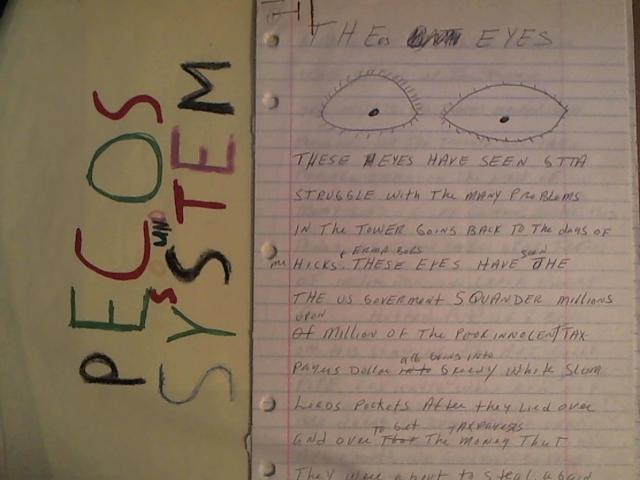 PECOS
MIND
SYSTEM
THEse EYES
THESE EYES HAVE SEEN GTTA
STRUGGLE with The MANY PROBlEMS
IN The TOWER GOING BACK TO The days OF
MR HICKS. THESE EYES HAVE seen THE
THE US GOVERMENT SQUANDER millions
UPON Million OF The POOR INNOCENT TAX
PAYERS DollAR all GOING INTO GREEDY White Slum
LORDS POCKETS AFTER they LIED OVER
and over To Get The TAXPAYERS MONEY ThAT
They were about to steal again